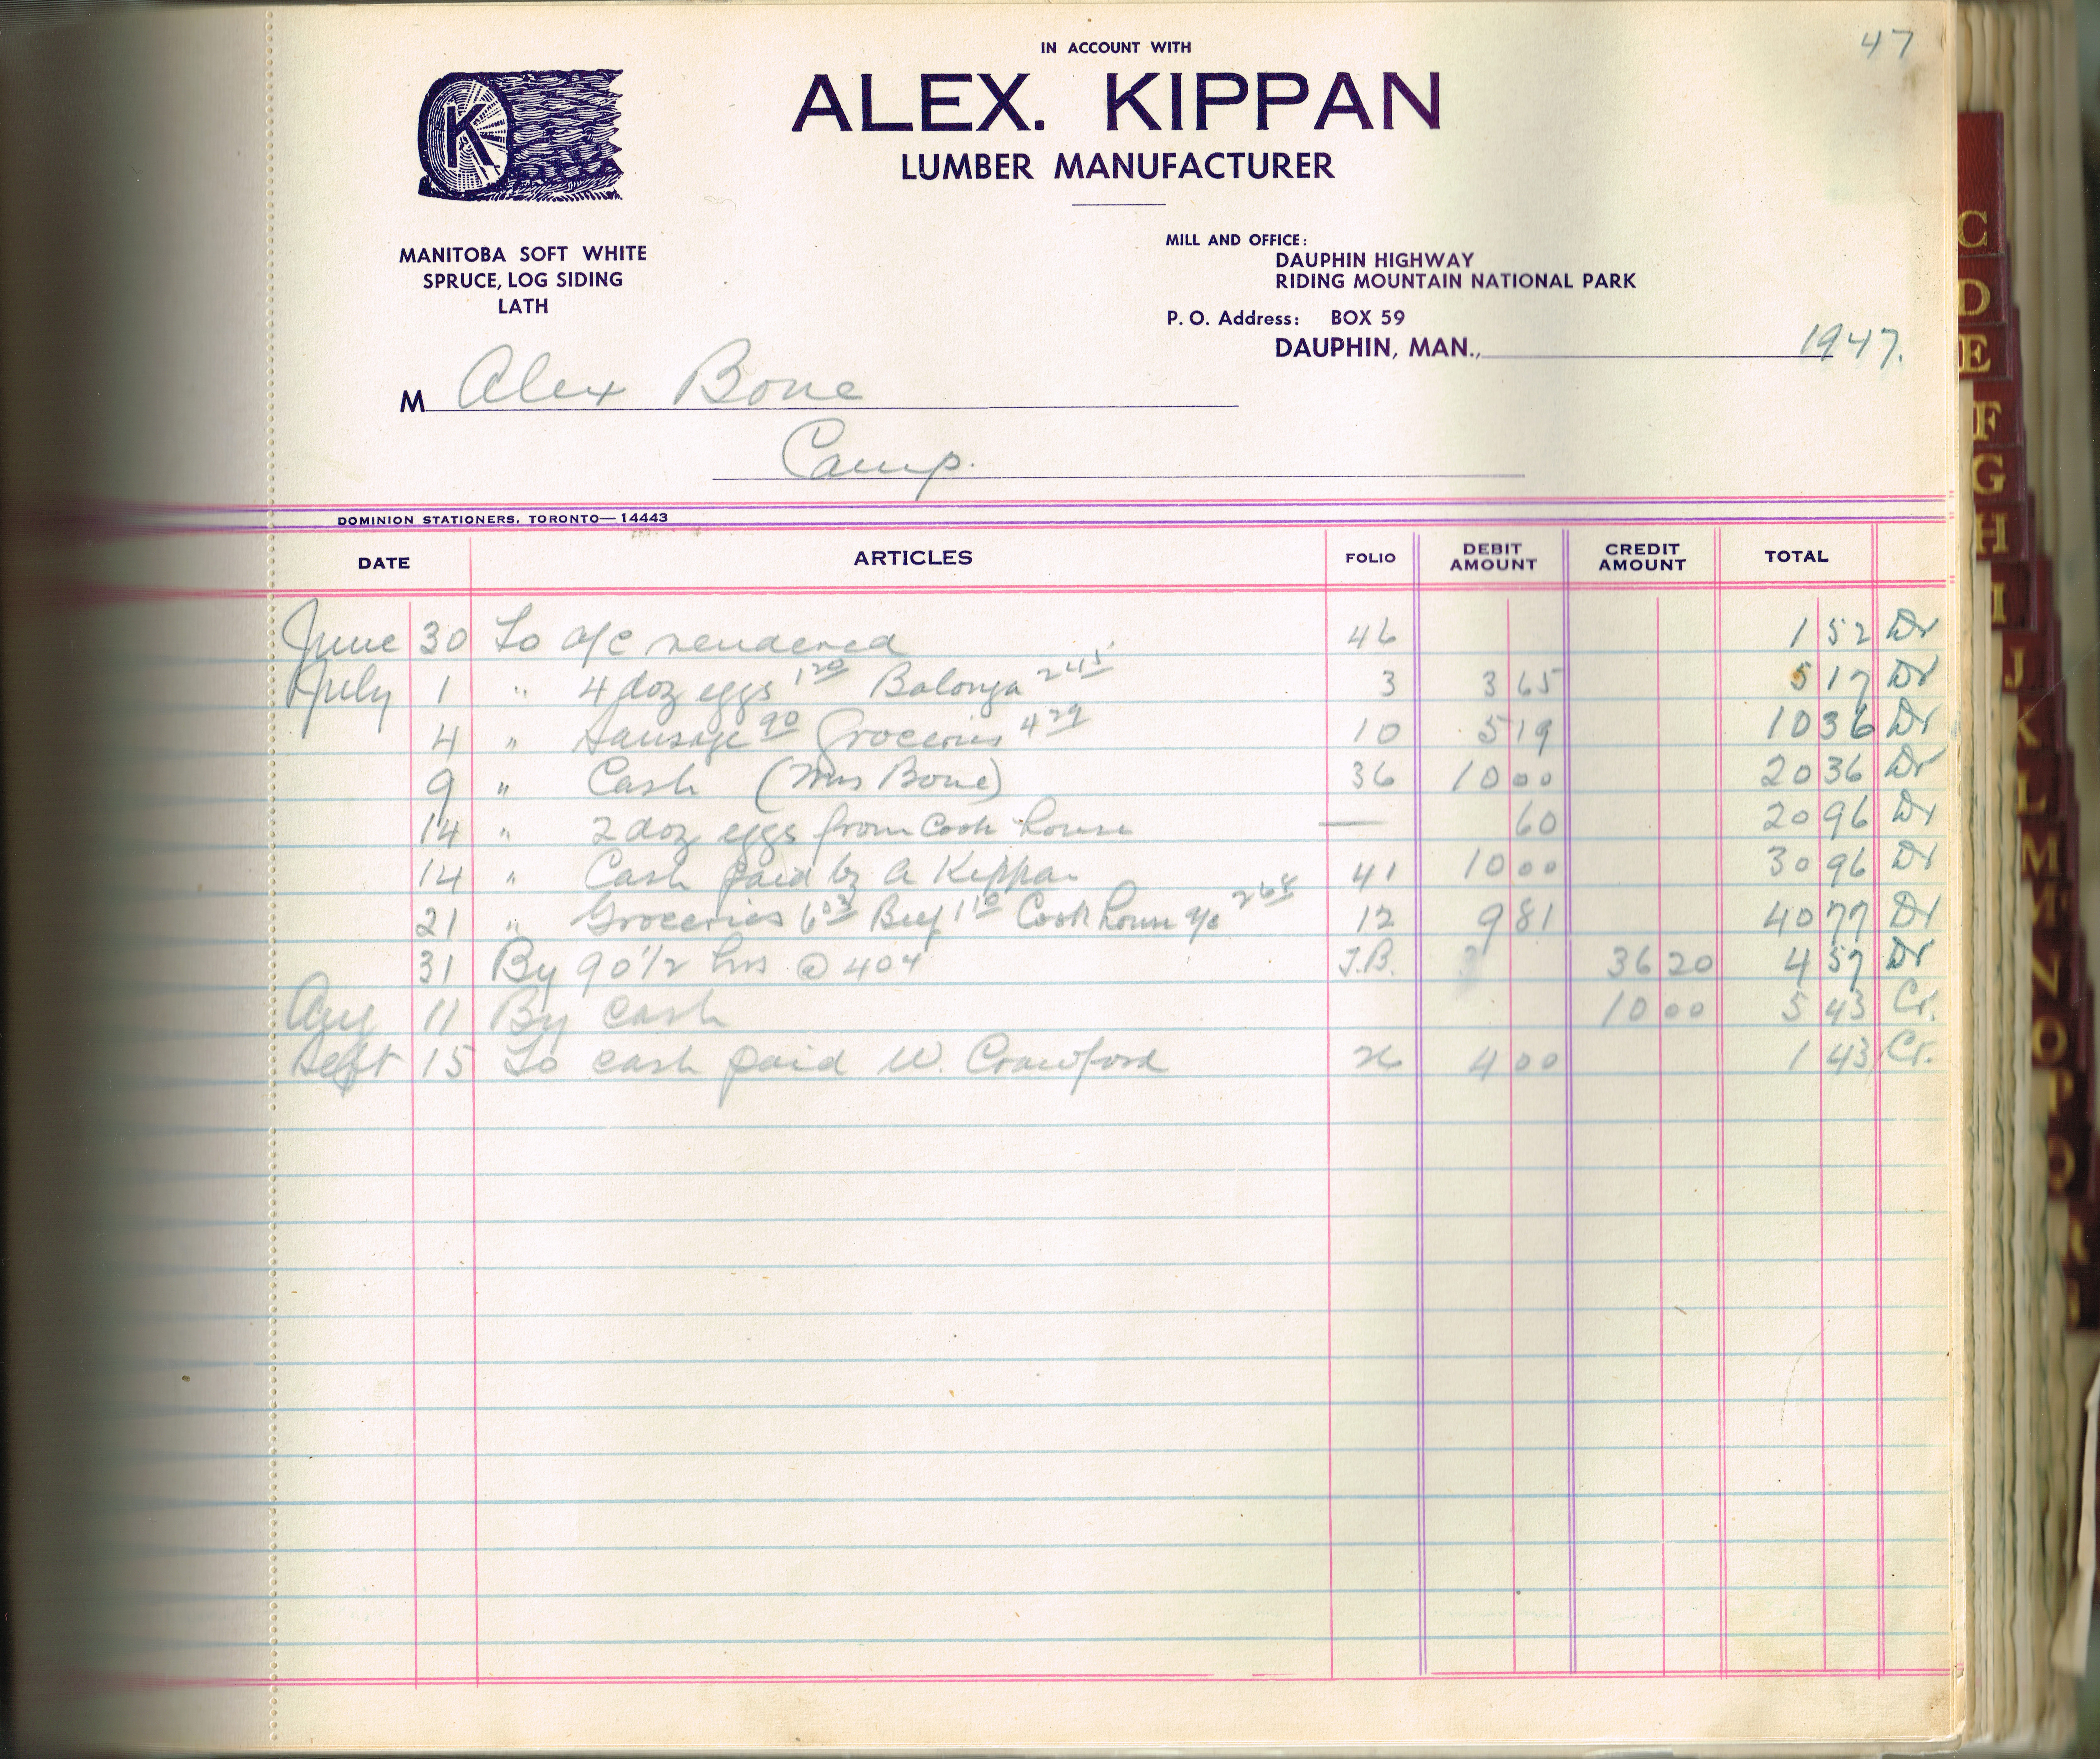 47
IN ACCOUNT WITH
ALEX. KIPPAN
LUMBER MANUFACTURER
K
MANITOBA SOFT WHITE
SPRUCE, LOG SIDING
LATH
MILL AND OFFICE:
DAUPHIN HIGHWAY
RIDING MOUNTAIN NATIONAL PARK
P. O. Address: BOX 59
DAUPHIN, MAN., 1947.
M Alex Bone
Camp.
DOMINION STATIONERS, TORONTO—14443
DATE ARTICLES FOLIO DEBIT AMOUNT CREDIT AMOUNT TOTAL
June 30 To a/c rendered 46 1 52 Dr
July 1 " 4 doz eggs 1 20 Balonya 2 45 3 3 65 5 17 Dr
4 " Sausage 90 Groceries 4 29 10 5 19 10 36 Dr
9 " Cash (Mrs Bone) 36 10 00 20 36 Dr
14 " 2 doz eggs from Cook house — 60 20 96 Dr
14 " Cash paid by A Kippan 41 10 00 30 96 Dr
21 " Groceries 6 03 Beef 1 10 Cook house a/c 2 68 12 9 81 40 77 Dr
31 By 90 1/2 hrs @ 40¢ T.B. 36 20 4 57 Dr
Aug 11 By cash 10 00 5 43 Cr.
Sept 15 To cash paid W. Crawford 26 4 00 1 43 Cr.
C
D
E
F
G
H
I
J
K
L
M
Mc
N
O
P
Q